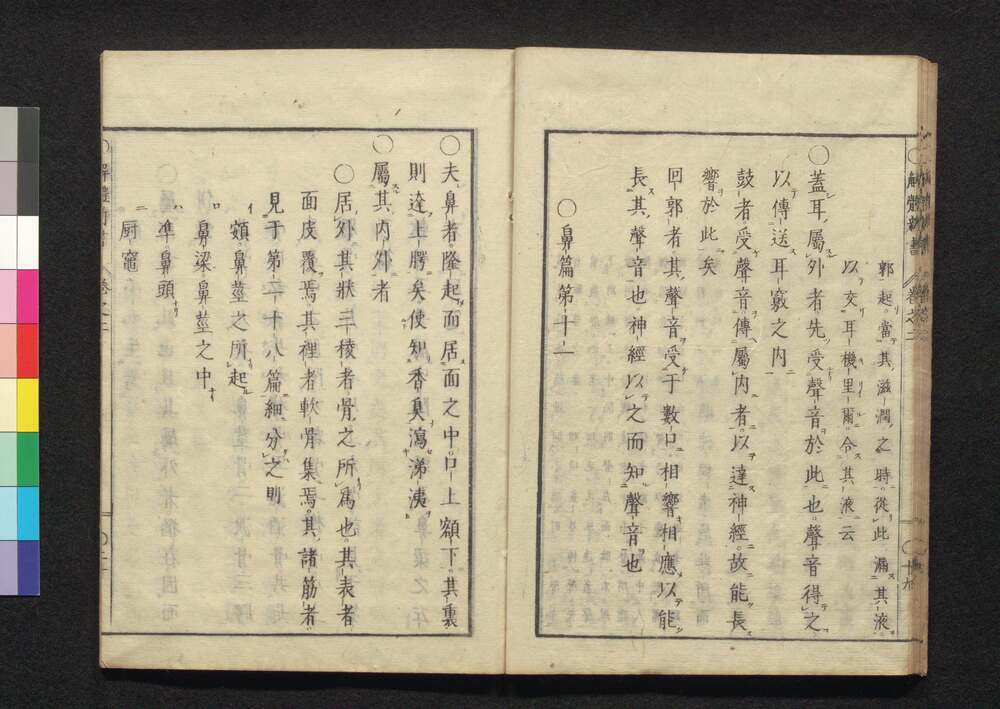 郭起。當其滋潤之時。從此漏其液。
以交耳機里爾。令其液云
〇蓋耳。屬外者先受聲音於此也。聲音得之。
以傳送耳竅之内
鼓者受聲音。傳屬内者。以達神經。故能長
響於此矣
回郭者其聲音受于數口。相響相應。以能
長其聲音也。神經以之而知聲音也
〇鼻篇第十一
〇夫鼻者。隆起而居面之中。口上額下。其裏
則達上腭矣。使知香臭瀉涕洟
〇屬其内外者
〇居外其狀三稜者。骨之所爲也。其表者
面皮覆焉。其裡者軟骨集焉。其諸筋者
見于第二十八篇。細分之則
頞鼻莖之所起
鼻梁鼻莖之中
準鼻頭
厨竈